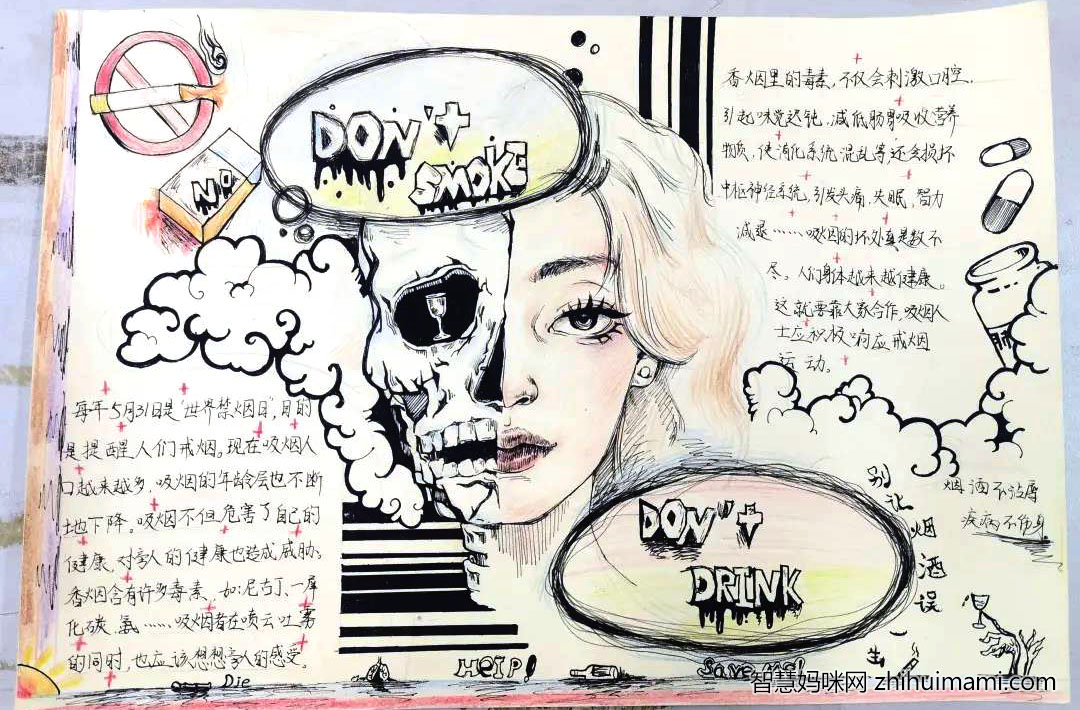 DON'T
SMOKE
NO
香烟里的毒素，不仅会刺激口腔，
引起味觉迟钝，减低肠胃吸收营养
物质，使消化系统混乱等还会损坏
中枢神经系统，引发头痛，失眠，智力
减退……吸烟的坏处真是数不
尽。人们身体越来越健康。
这就要靠大家合作，吸烟人
士应积极响应戒烟
运动。
每年5月31日是"世界禁烟日"，目的
是提醒人们戒烟。现在吸烟人
口越来越多，吸烟的年龄层也不断
地下降。吸烟不但危害了自己的
健康，对旁人的健康也造成威胁；
香烟含有许多毒素，如尼古丁、一屏
化碳、氨……吸烟者在喷云吐雾
的同时，也应该想想旁人的感受。
DON"t
DRINK
别让烟酒误一生
烟酒不沾唇
疾病不伤身
Die
HElP!
Save me!
智慧妈咪网 zhihuimami.com